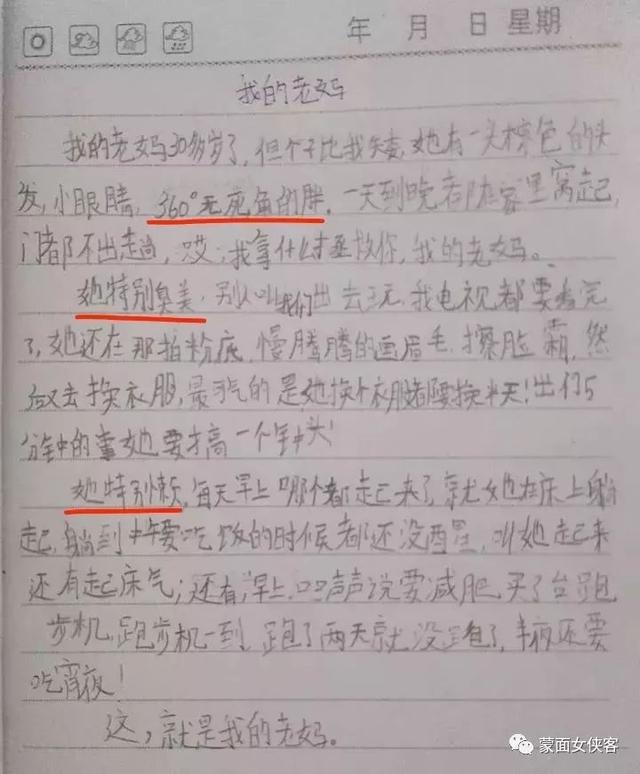 年 月 日 星期
我的老妈
我的老妈30多岁了，但个子比我矮，她有一头棕色的头
发，小眼睛，360°无死角的胖。一天到晚都在家里窝起，
门都不出趟，哎，我拿什么拯救你，我的老妈。
她特别臭美，别人叫我们出去玩，我电视都要看完
了，她还在那拍粉底，慢腾腾的画眉毛，擦脸霜，然
后又去换衣服，最气的是她换个衣服都要换半天！出门5
分钟的事她要搞一个钟头！
她特别懒，每天早上哪个都起来了，就她在床上躺
起，躺到中午要吃饭的时候都还没醒，叫她起来
还有起床气；还有，早上口口声声说要减肥，买了台跑
步机，跑步机一到，跑了两天就没跑了，半夜还要
吃宵夜！
这，就是我的老妈。
蒙面女侠客